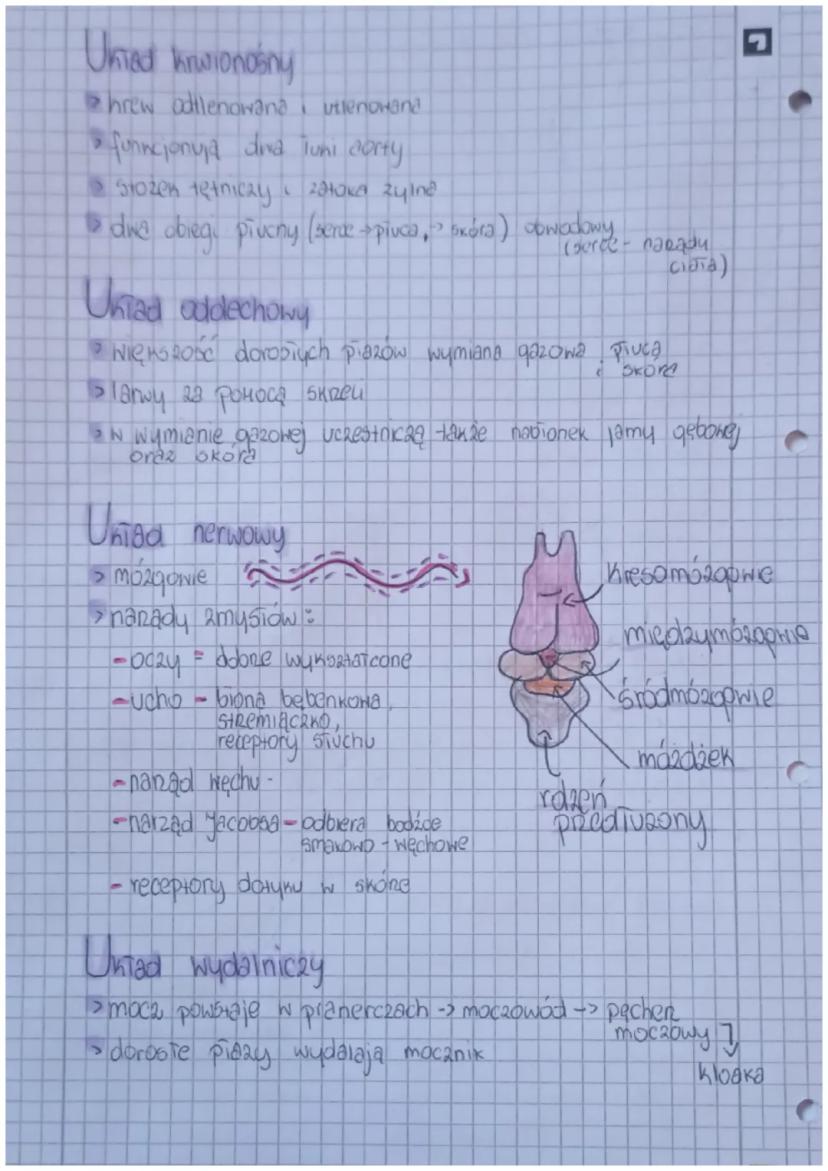 Układ krwionośny
> krew odtlenowana i utlenowana
> funkcjonują dwa łuki aorty
> stożek tętniczy i zatoka żylna
> dwa obiegi płucny (serce → płuca, → skóra) obwodowy
(serce - narządy
ciała)
Układ oddechowy
> większość dorosłych płazów wymiana gazowa : płuca
i skórę
> larwy za pomocą skrzeli
> w wymianie gazowej uczestniczą także nabłonek jamy gębowej
oraz skóra
Układ nerwowy
> mózgowie
> narządy zmysłów:
- oczy = dobrze wykształcone
- ucho - błona bębenkowa,
strzemiączko,
receptory słuchu
- narząd węchu -
- narząd Jacobsa - odbiera bodźce
smakowo - węchowe
- receptory dotyku w skórze
kresomózgowie
międzymózgowie
śródmózgowie
móżdżek
rdzeń
przedłużony
Układ wydalniczy
> mocz powstaje w pranerczach -> moczowód -> pęcherz
moczowy
> dorosłe płazy wydalają mocznik
kloaka